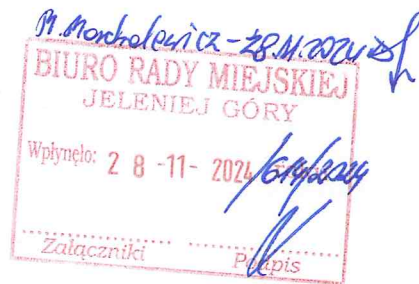 28.11.2024
BIURO RADY MIEJSKIEJ
JELENIEJ GÓRY
Wpłynęło: 28 -11- 2024 /614/2024
Załączniki Podpis